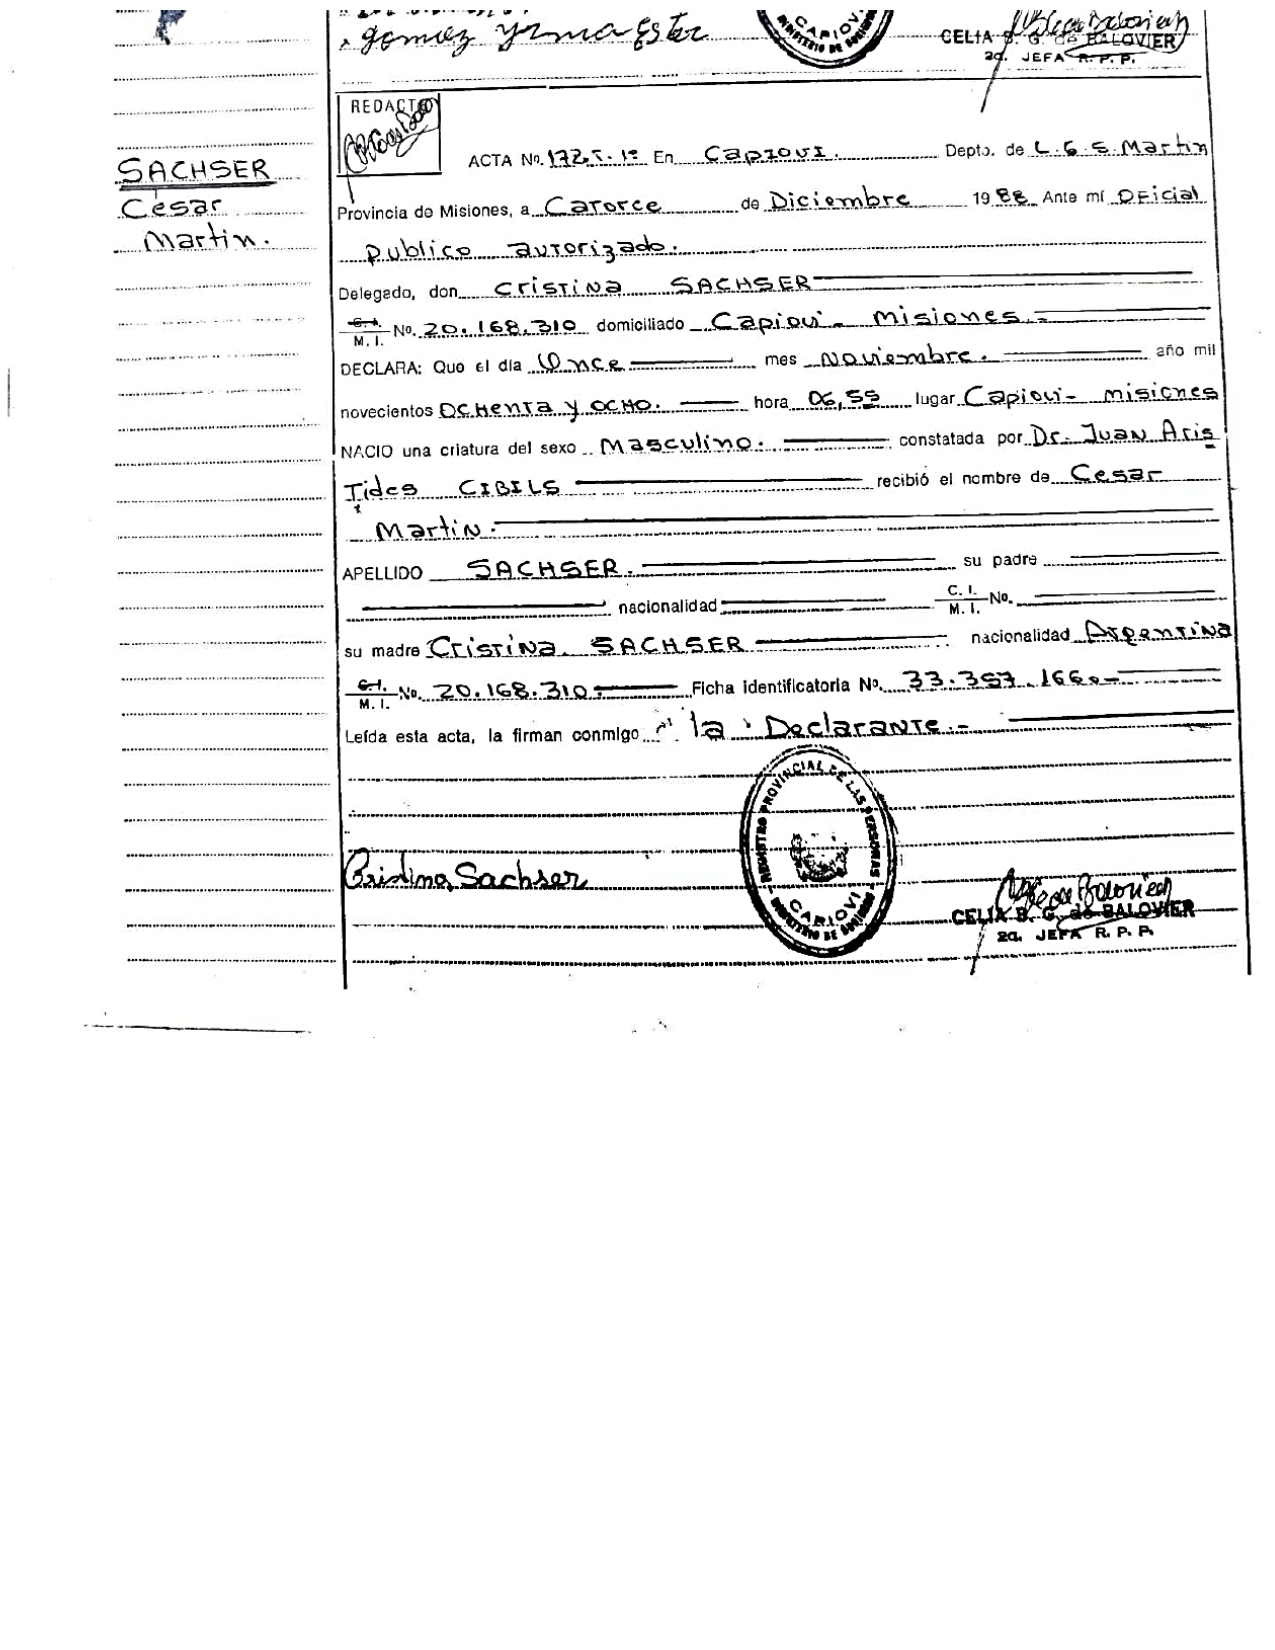 gomez Yrma Ester
CAPIOVI
MINISTERIO DE GOBIERNO
CELIA B. G. de BALOVIER
2a. JEFA R. P. P.
REDACTO
SACHSER
Cesar
Martin.
ACTA No. 172.T.1º En Capiovi. Depto. de L.G.S. Martin
Provincia de Misiones, a Catorce de Diciembre 1988 Ante mí Oficial
publico autorizado.
Delegado, don Cristina SACHSER
C.I. M.I. No. 20.168.310 domiciliado Capiovi - Misiones.-
DECLARA: Que el día Once mes Noviembre. año mil
novecientos Ochenta y Ocho. hora 06,55 lugar Capiovi - Misiones
NACIO una criatura del sexo Masculino. constatada por Dr. Juan Aris
Tides CIBILS recibió el nombre de Cesar
Martin.
APELLIDO SACHSER. su padre
nacionalidad C. I. M. I. No.
su madre Cristina SACHSER nacionalidad Argentina
C.I. M.I. No. 20.168.310.- Ficha identificatoria No. 33.357.166.-
Leída esta acta, la firman conmigo la Declarante.-
REGISTRO PROVINCIAL DE LAS PERSONAS
CAPIOVI
MINISTERIO DE GOBIERNO
Cristina Sachser
CELIA B. G. de BALOVIER
2a. JEFA R. P. P.